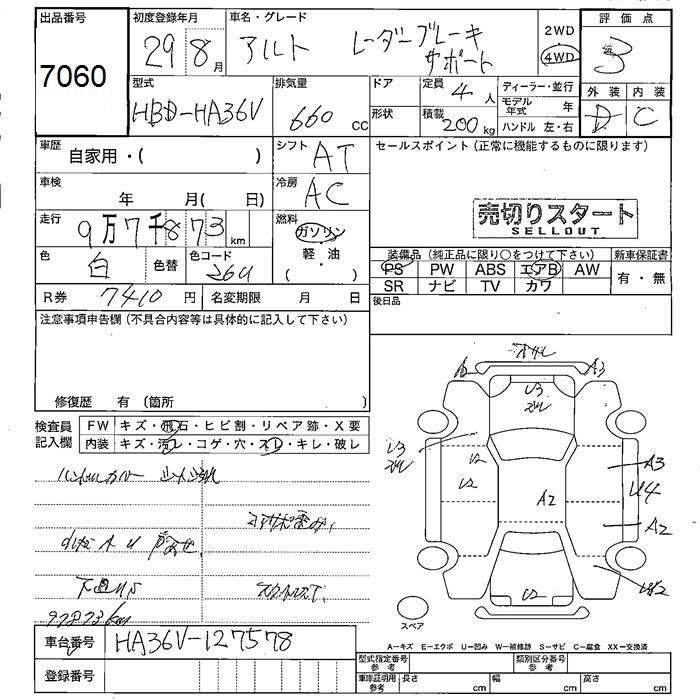 出品番号
7060
初度登録年月
29 8 月
車名・グレード
アルト レーダーブレーキ
サポート
2WD
4WD
評価点
3
型式
HBD-HA36V
排気量
660 cc
ドア
形状
定員
4 人
積載
200 kg
ディーラー・並行
モデル年式 年
ハンドル 左・右
外装 内装
D C
車歴
自家用・( )
シフト
AT
セールスポイント (正常に機能するものに限ります)
車検
年 月( 日)
冷房
AC
走行
9万7千873 km
燃料
ガソリン
軽・油
( )
売切りスタート
SELLOUT
色
白
色替
色コード
26U
装備品 (純正品に限り○をつけて下さい)
新車保証書
PS PW ABS エアB AW
有・無
SR ナビ TV カワ
R券 7410 円
名変期限 月 日
後日品
注意事項申告欄 (不具合内容等は具体的に記入して下さい)
修復歴 有 (箇所
検査員記入欄
FW キズ・飛石・ヒビ割・リペア跡・X要
内装 キズ・汚レ・コゲ・穴・スレ・キレ・破レ
ハンドルカバー
下廻りS
97873km
A3
U3
U3
U2
U2
A2
A3
U4
A2
U2
スペア
A−キズ E−エクボ U−凹み W−補修跡 S−サビ C−腐食 XX−交換済
車台番号 HA36V-127578
登録番号
型式指定番号 参考
類別区分番号 参考
車庫証明用 参考
長さ cm
幅 cm
高さ cm